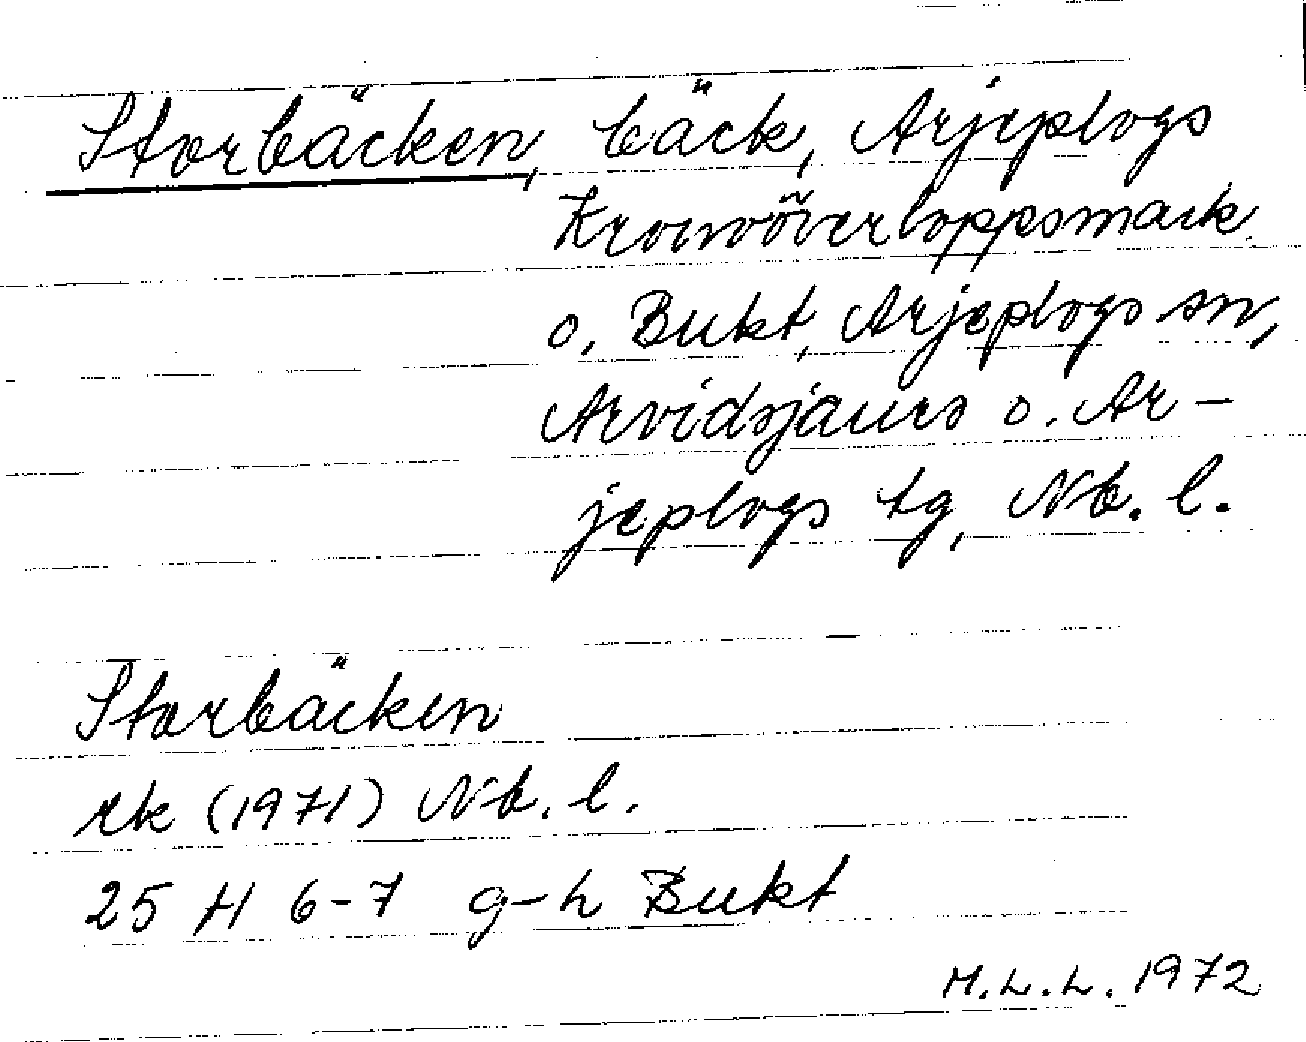 Storbäcken, bäck, Arjeplogs
Kronoöverloppsmark
o. Bukt, Arjeplogs sn,
Arvidsjaurs o. Ar-
jeplogs tg, Nb. l.
Storbäcken
rk (1971) Nb. l.
25 H 6-7 g-h Bukt
M.L.L. 1972